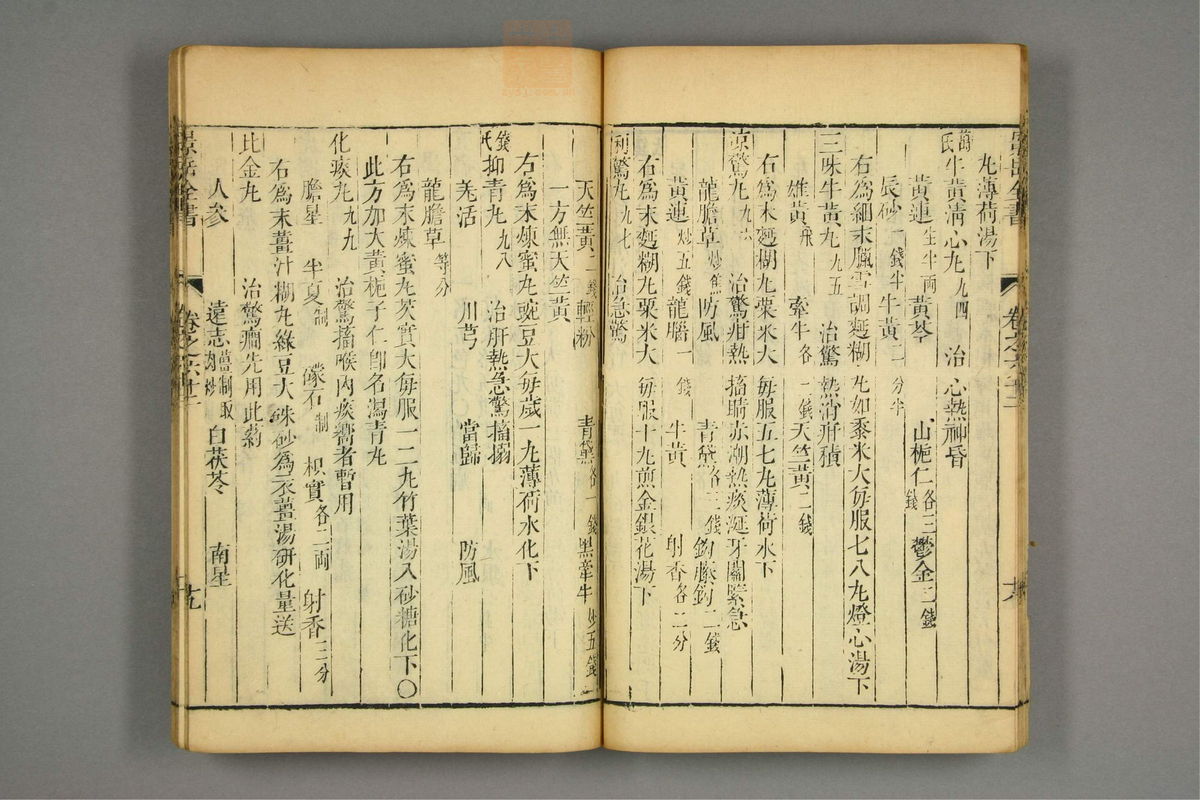 丸薄荷湯下
萬氏牛黃清心丸九四　治心熱神昏
黃連生半兩　黃芩　山梔仁各三錢　鬱金二錢
辰砂一錢半　牛黃二分半
右爲細末臘雪調麪糊丸如黍米大每服七八丸燈心湯下
三味牛黃丸九五　治驚熱消疳積
雄黃飛　牽牛各一錢　天竺黃二錢
右爲末麪糊丸粟米大每服五七丸薄荷水下
涼驚丸九六　治驚疳熱搐睛赤潮熱痰涎牙關緊急
龍膽草炒焦　防風　青黛各三錢　鉤籐鉤二錢
黃連炒五錢　龍腦一錢　牛黃　射香各二分
右爲末麪糊丸粟米大每服十丸煎金銀花湯下
利驚丸九七　治急驚
天竺黃二錢　輕粉　青黛各一錢　黑牽牛炒五錢
一方無天竺黃
右爲末煉蜜丸豌豆大每歲一丸薄荷水化下
錢氏抑青丸九八　治肝熱急驚搐搦
羌活　川芎　當歸　防風
龍膽草等分
右爲末煉蜜丸芡實大每服一二丸竹葉湯入砂糖化下〇
此方加大黃梔子仁卽名瀉青丸
化痰丸九九　治驚搐喉內痰嚮者暫用
膽星　半夏制　礞石制　枳實各二兩　射香二分
右爲末薑汁糊丸綠豆大硃砂爲衣薑湯研化量送
比金丸　治驚癎先用此藥
人參　遠志薑制取肉炒　白茯苓　南星
景岳全書　卷之六十二　十九